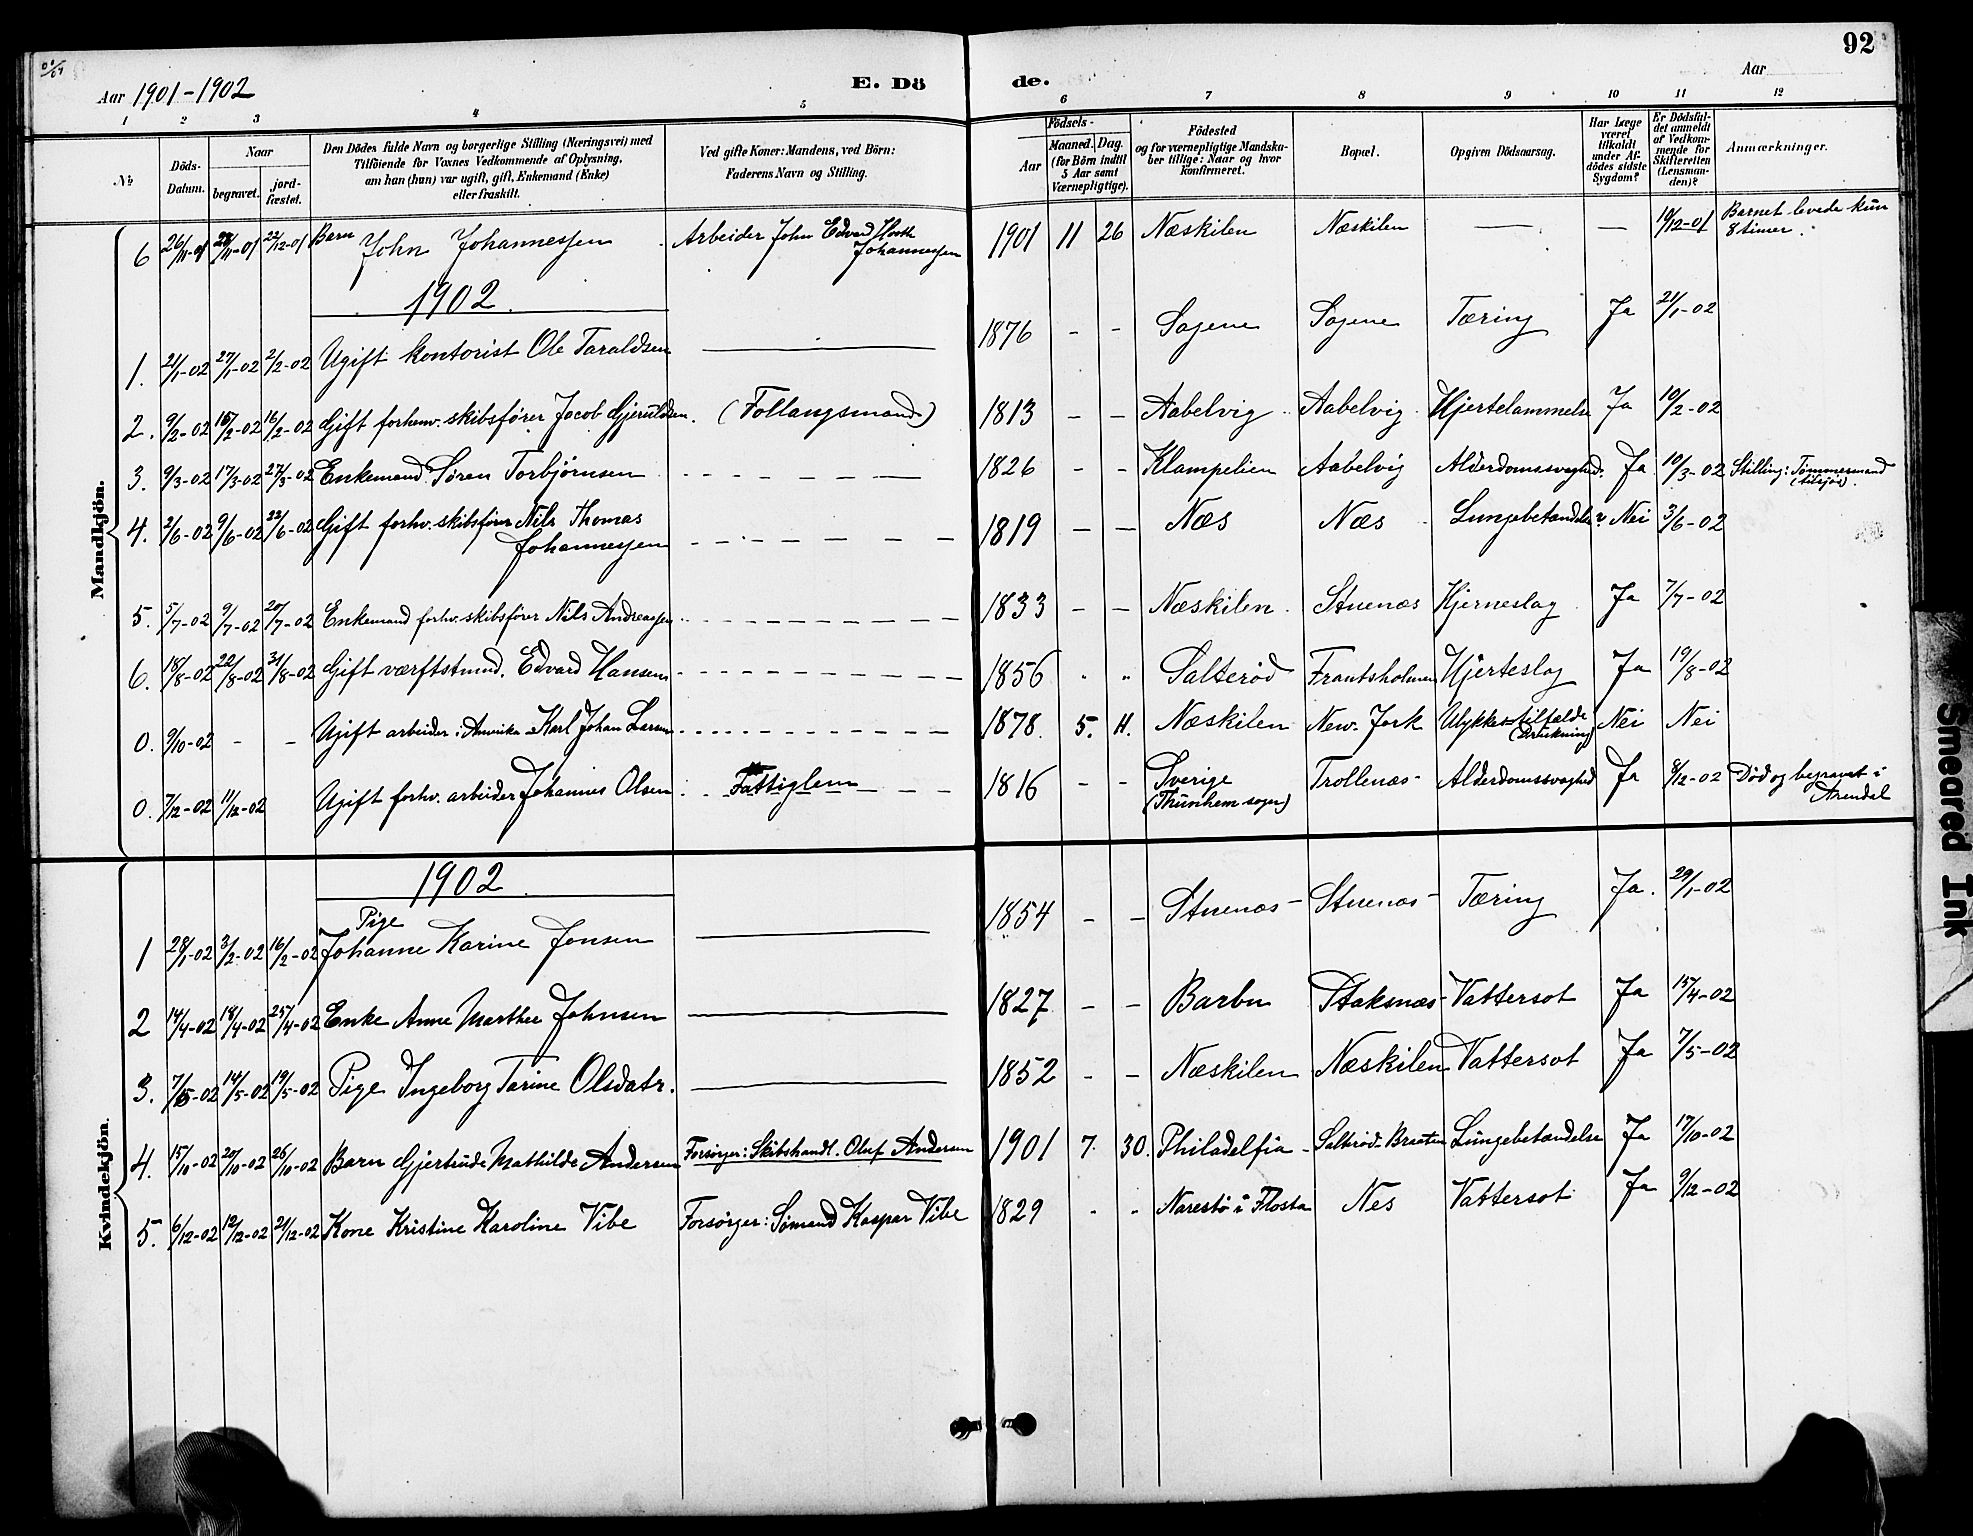 92
Aar 1901-1902
E. Dö de.
Aar
1 2 3 4 5 6 7 8 9 10 11 12
No
Döds-Datum.
Naar
begravet.
jord-fæstet.
Den Dödes fulde Navn og borgerlige Stilling (Næringsvei) med
Tilföiende for Voxnes Vedkommende af Oplysning,
om han (hun) var ugift, gift, Enkemand (Enke)
eller fraskilt.
Ved gifte Koner: Mandens, ved Börn:
Faderens Navn og Stilling.
Födsels-
Aar
Maaned. Dag.
(for Börn indtil
5 Aar samt
Værnepligtige).
Födested
og for værnepligtige Mandska-
ber tillige: Naar og hvor
konfirmeret.
Bopæl.
Opgiven Dödsaarsag.
Har Læge
været
tilkaldt
under Af-
dödes sidste
Sygdom?
Er Dödsfal-
det anmeldt
af Vedkom-
mende for
Skifteretten
(Lensman-
den)?
Anmærkninger.
Mandkjön.
6 26/11-01 28/11-01 22/12-01 Barn John Johannessen Arbeider John Edvard Johannessen 1901 11 26 Næskilen Næskilen — — 10/12-01 Barnet levede kun 8 timer.
1902
1. 21/1-02 27/1-02 2/2-02 Ugift kontorist Ole Taraldsen — 1876 - - Sagene Sagene Tæring Ja 21/1-02
2. 9/2-02 15/2-02 16/2-02 Gift forhenv. skibsfører Jacob Gjeruldsen. (Follaugsmand) 1813 - - Aabelvig Aabelvig Hjertelammelse Ja 10/2-02
3. 9/3-02 17/3-02 27/3-02 Enkemand Søren Torbjørnsen - - - - 1826 - - Klampelien Aabelvig Alderdomssvaghed. Ja 10/3-02 Stilling: Tømmermand (tilsjøs).
4. 2/6-02 9/6-02 22/6-02 Gift forhv. skibsfører Nils Thomas Johannessen - - - - 1819 - - Næs Næs Lungebetændelse? Nei 3/6-02
5. 5/7-02 9/7-02 20/7-02 Enkemand forhv. skibsfører Nils Andreassen - - - - 1833 - - Næskilen Stuenæs Hjerneslag Ja 7/7-02
6. 18/8-02 22/8-02 31/8-02 Gift værftstmd. Edvard Hansen - - - - 1856 " " Salterød Frantsholmen Hjerteslag Ja 19/8-02
0. 9/10-02 - - Ugift arbeider i Amerika Karl Johan Larsen - - - - 1878. 5. 11. Næskilen New-Jork Ulykkestilfælde (Drukning) Nei Nei
0. 7/12-02 11/12-02 Ugift forhv. arbeider Johannes Olsen Fattiglem 1816 - - Sverige (Thunhem sogn) Trollenæs Alderdomssvaghed Ja 8/12-02 Død og begravet i Arendal
Kvindekjön.
1902
1 28/1-02 3/2-02 16/2-02 Pige Johanne Karine Jensen — 1854 - - Stuenæs Stuenæs Tæring Ja. 29/1-02
2 14/4-02 18/4-02 25/4-02 Enke Anne Marthee Johnsen — 1827 - - Barbu Staksnæs Vattersot Ja 15/4-02
3. 7/5-02 14/5-02 19/5-02 Pige Ingeborg Tarine Olsdatr. — 1852 - - Næskilen Næskilen Vattersot Ja 7/5-02
4. 15/10-02 20/10-02 26/10-02 Barn Gjertrude Mathilde Andersen Forsørger: Skibshandl. Oluf Andersen 1901 7. 30. Philadelfia Saltrød-Braaten Lungebetændelse Ja 17/10-02
5. 6/12-02 12/12-02 21/12-02 Kone Kristine Karoline Vibe Forsørger: Sømand Kaspar Vibe 1829 " " Narestø i Flosta Nes Vattersot Ja 9/12-02
Smeared Ink